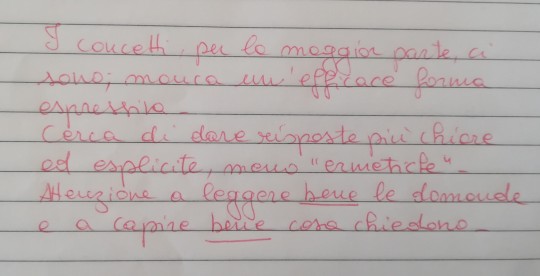 I concetti, per la maggior parte, ci
sono; manca un'efficace forma
espressiva -
Cerca di dare risposte più chiare
ed esplicite, meno "ermetiche" -
Attenzione a leggere bene le domande
e a capire bene cosa chiedono -